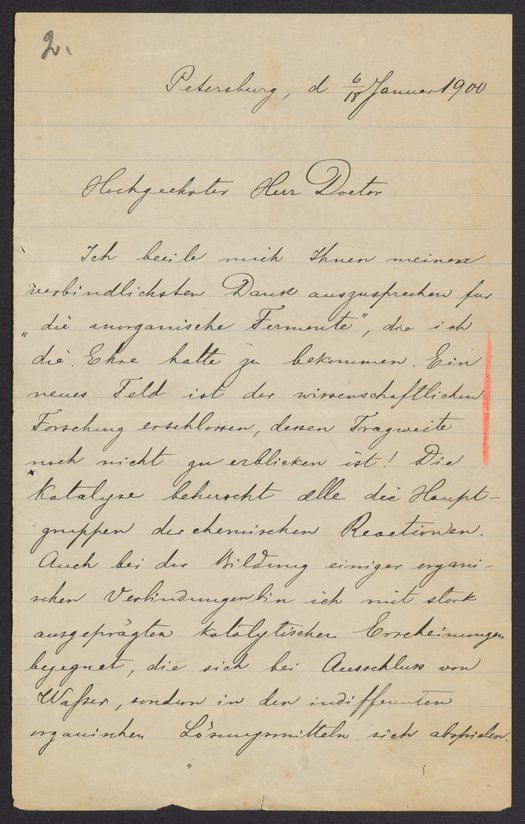 2.
Petersburg, d. 6/18 Januar 1900
Hochgeehrter Herr Doctor
Ich beeile mich Ihnen meinen
verbindlichsten Dank auszusprechen fur
„die anorganische Fermente", die ich
die Ehre hatte zu bekommen. Ein
neues Feld ist der wissenschaftlichen
Forschung erschlossen, dessen Tragweite
noch nicht zu erblicken ist! Die
Katalyse beherscht alle die Haupt-
gruppen der chemischen Reactionen.
Auch bei der Bildung einiger organi-
schen Verbindungen bin ich mit stark
ausgeprägten katalytischen Erscheinungen
begegnet, die sich bei Ausschluss von
Waſser, sondern in den indifferenten
organischen Lösungsmitteln sich abspielen.